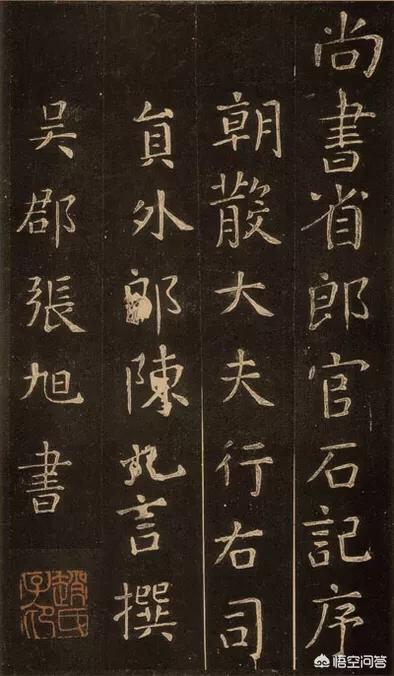 尚書省郎官石記序
朝散大夫行右司
員外郎陳九言撰
吳郡張旭書
趙氏子昂
悟空问答